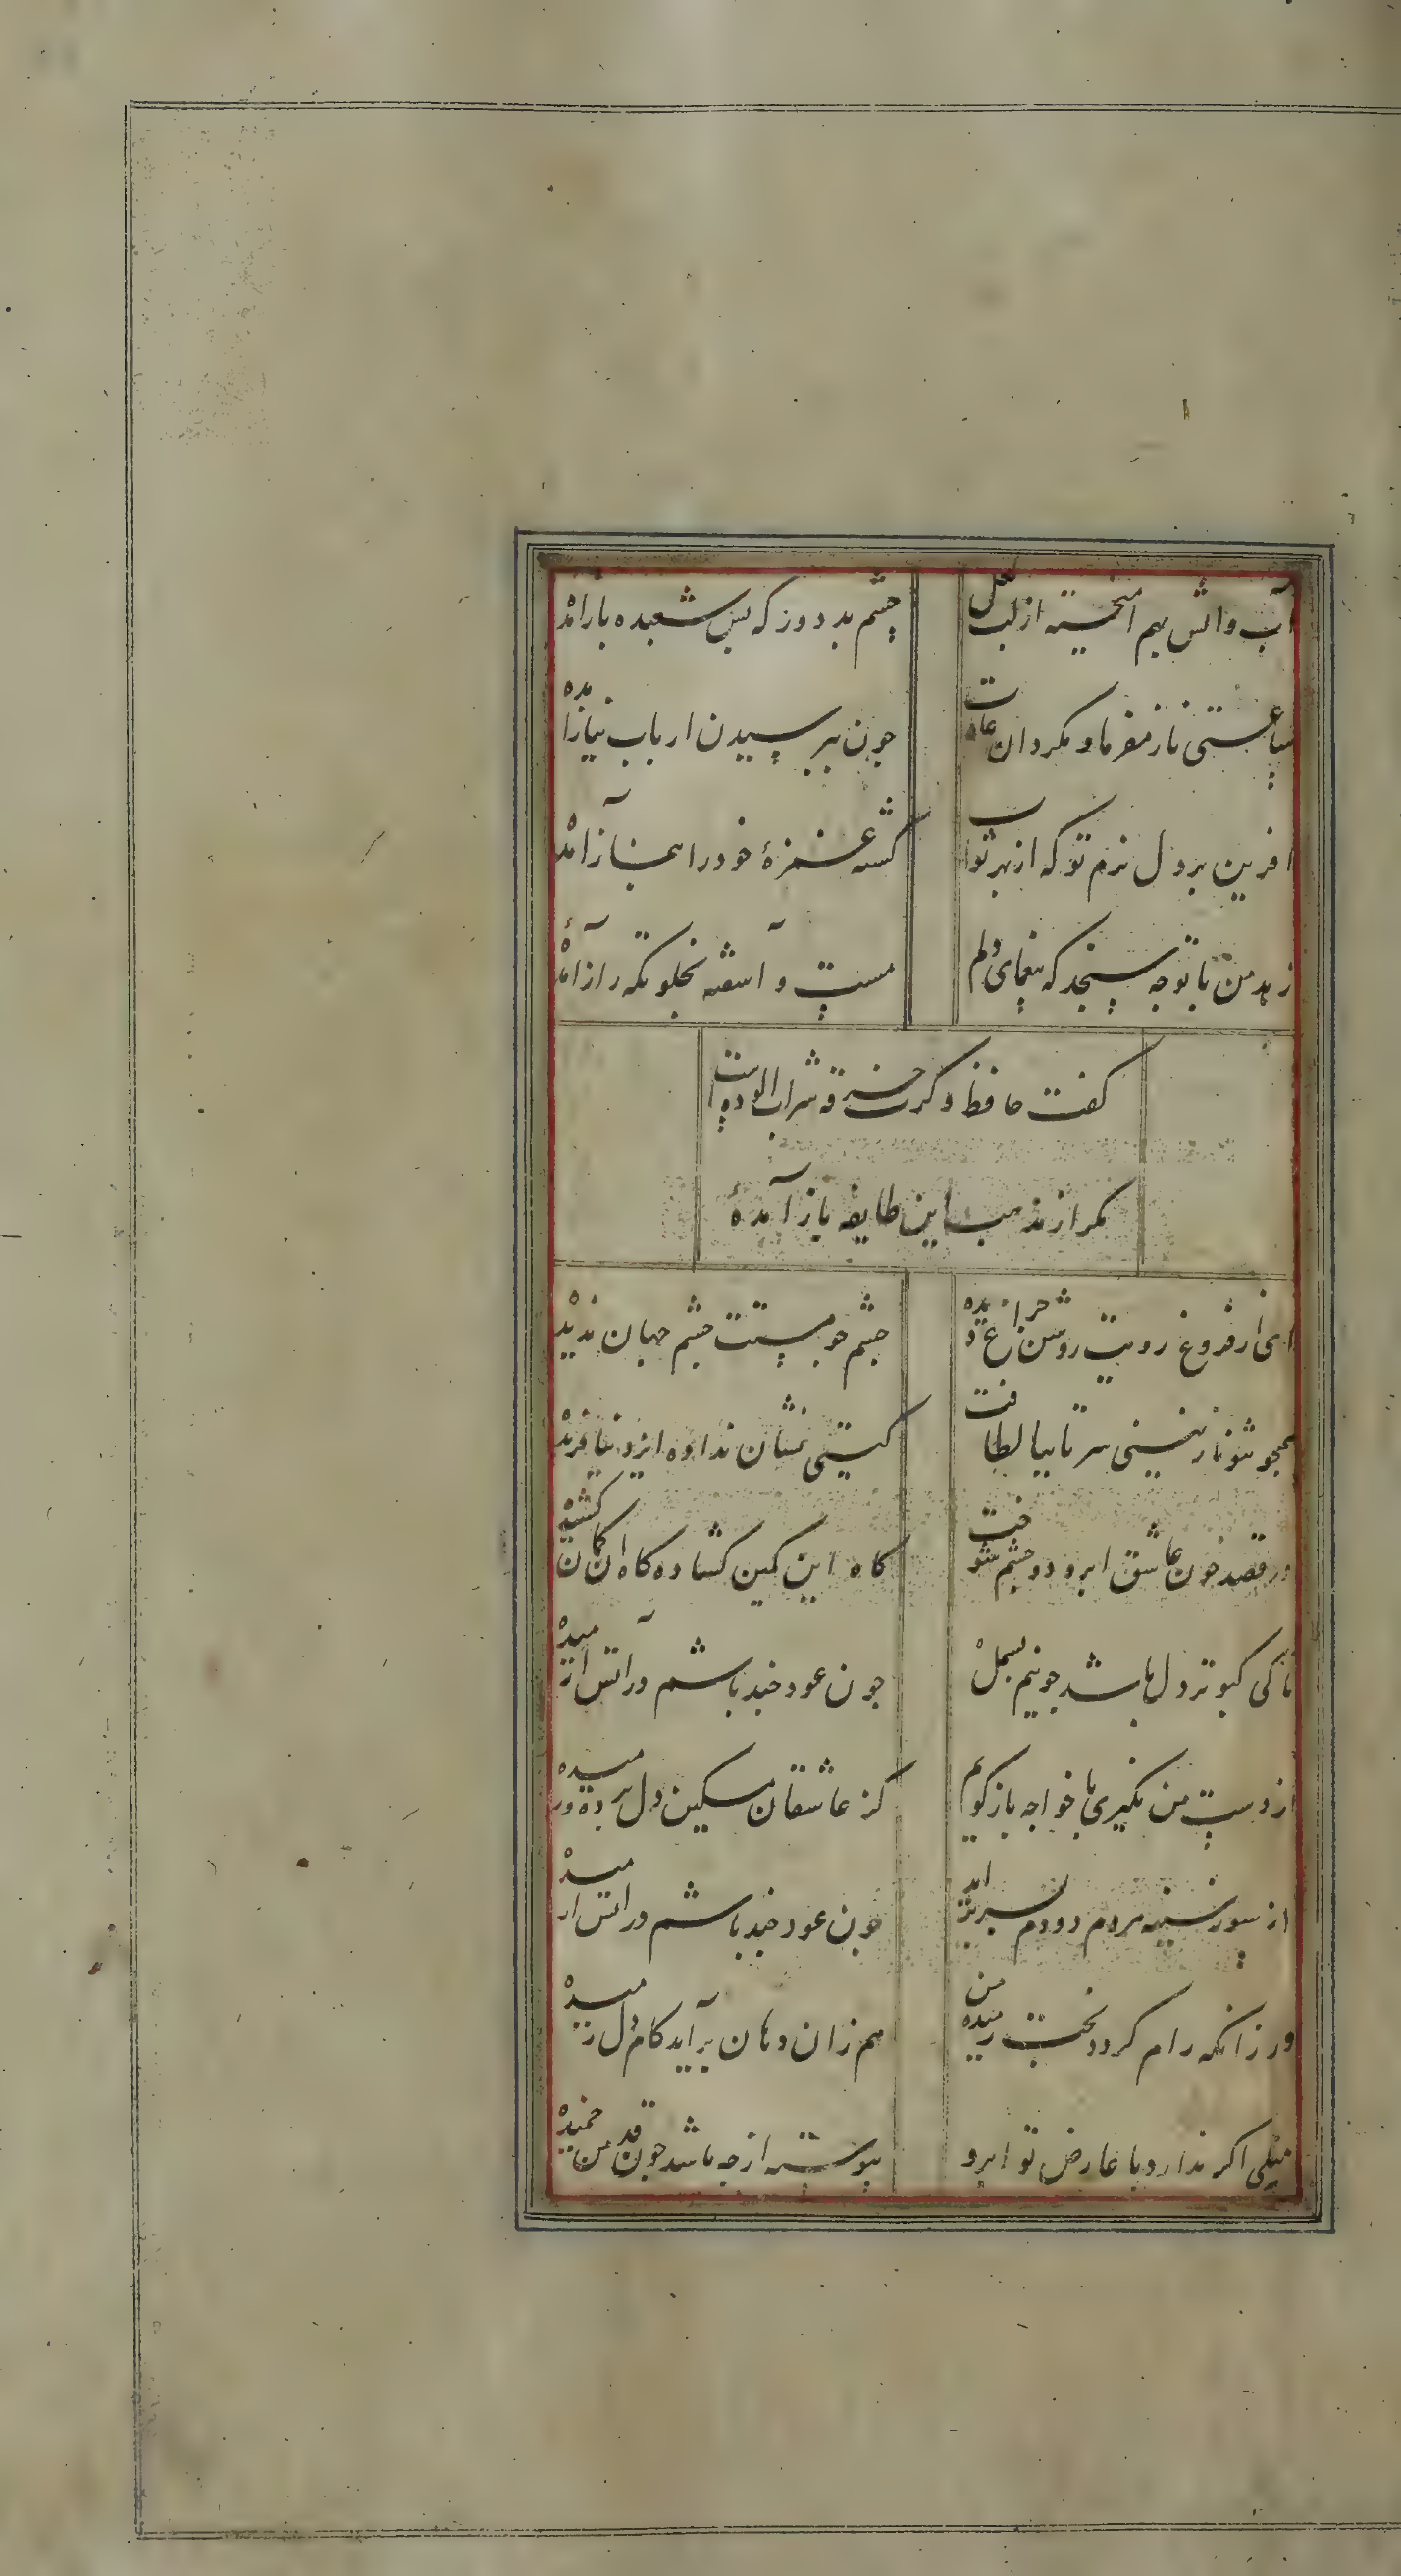 آب و اتش بهم امیخته از لب لعل
چشم بد دور که بس شعبده بازامدهٔ
ساعتی ناز مفرما و بگردان عادت
چون بپرسیدن ارباب نیاز امدهٔ
افرین بر دل نرم تو که از بهر ثواب
کشته غمزهٔ خود را بنماز آمدهٔ
زهد من با تو چه سنجد که بیغمای دلم
مست و آشفته بخلوتگه راز آمدهٔ
گفت حافظ دگرت خرقه شراب الوده است
مگر از مذهب این طایفه باز آمدهٔ
ای از فروغ رویت روشن چراغ دیده
چشم چو مستت چشم جهان ندیده
همچو تو نازنینی سر تا بپا لطافت
گیتی نشان نداده ایزد نیافریده
در قصد خون عاشق ابرو و چشم شوخت
گاه این کمین گشاده گاه ان کمان کشیده
تا کی کبوتر دل باشد چو نیم بسمل
چون عود چند باشم در آتش ار
از دست من نگیری با خواجه باز گویم
کز عاشقان مسکین دل برده و رمیده
از سوز سینه هر دم دودم بسر بر اید
چون عود چند باشم در اتش ار میده
ور زانکه رام گردد بخت رمیده من
هم زان دهان بر آید کام دل رمیده
میلی اگر ندارد با عارض تو ابرو
پیوسته از چه باشد چون قد من خمیده